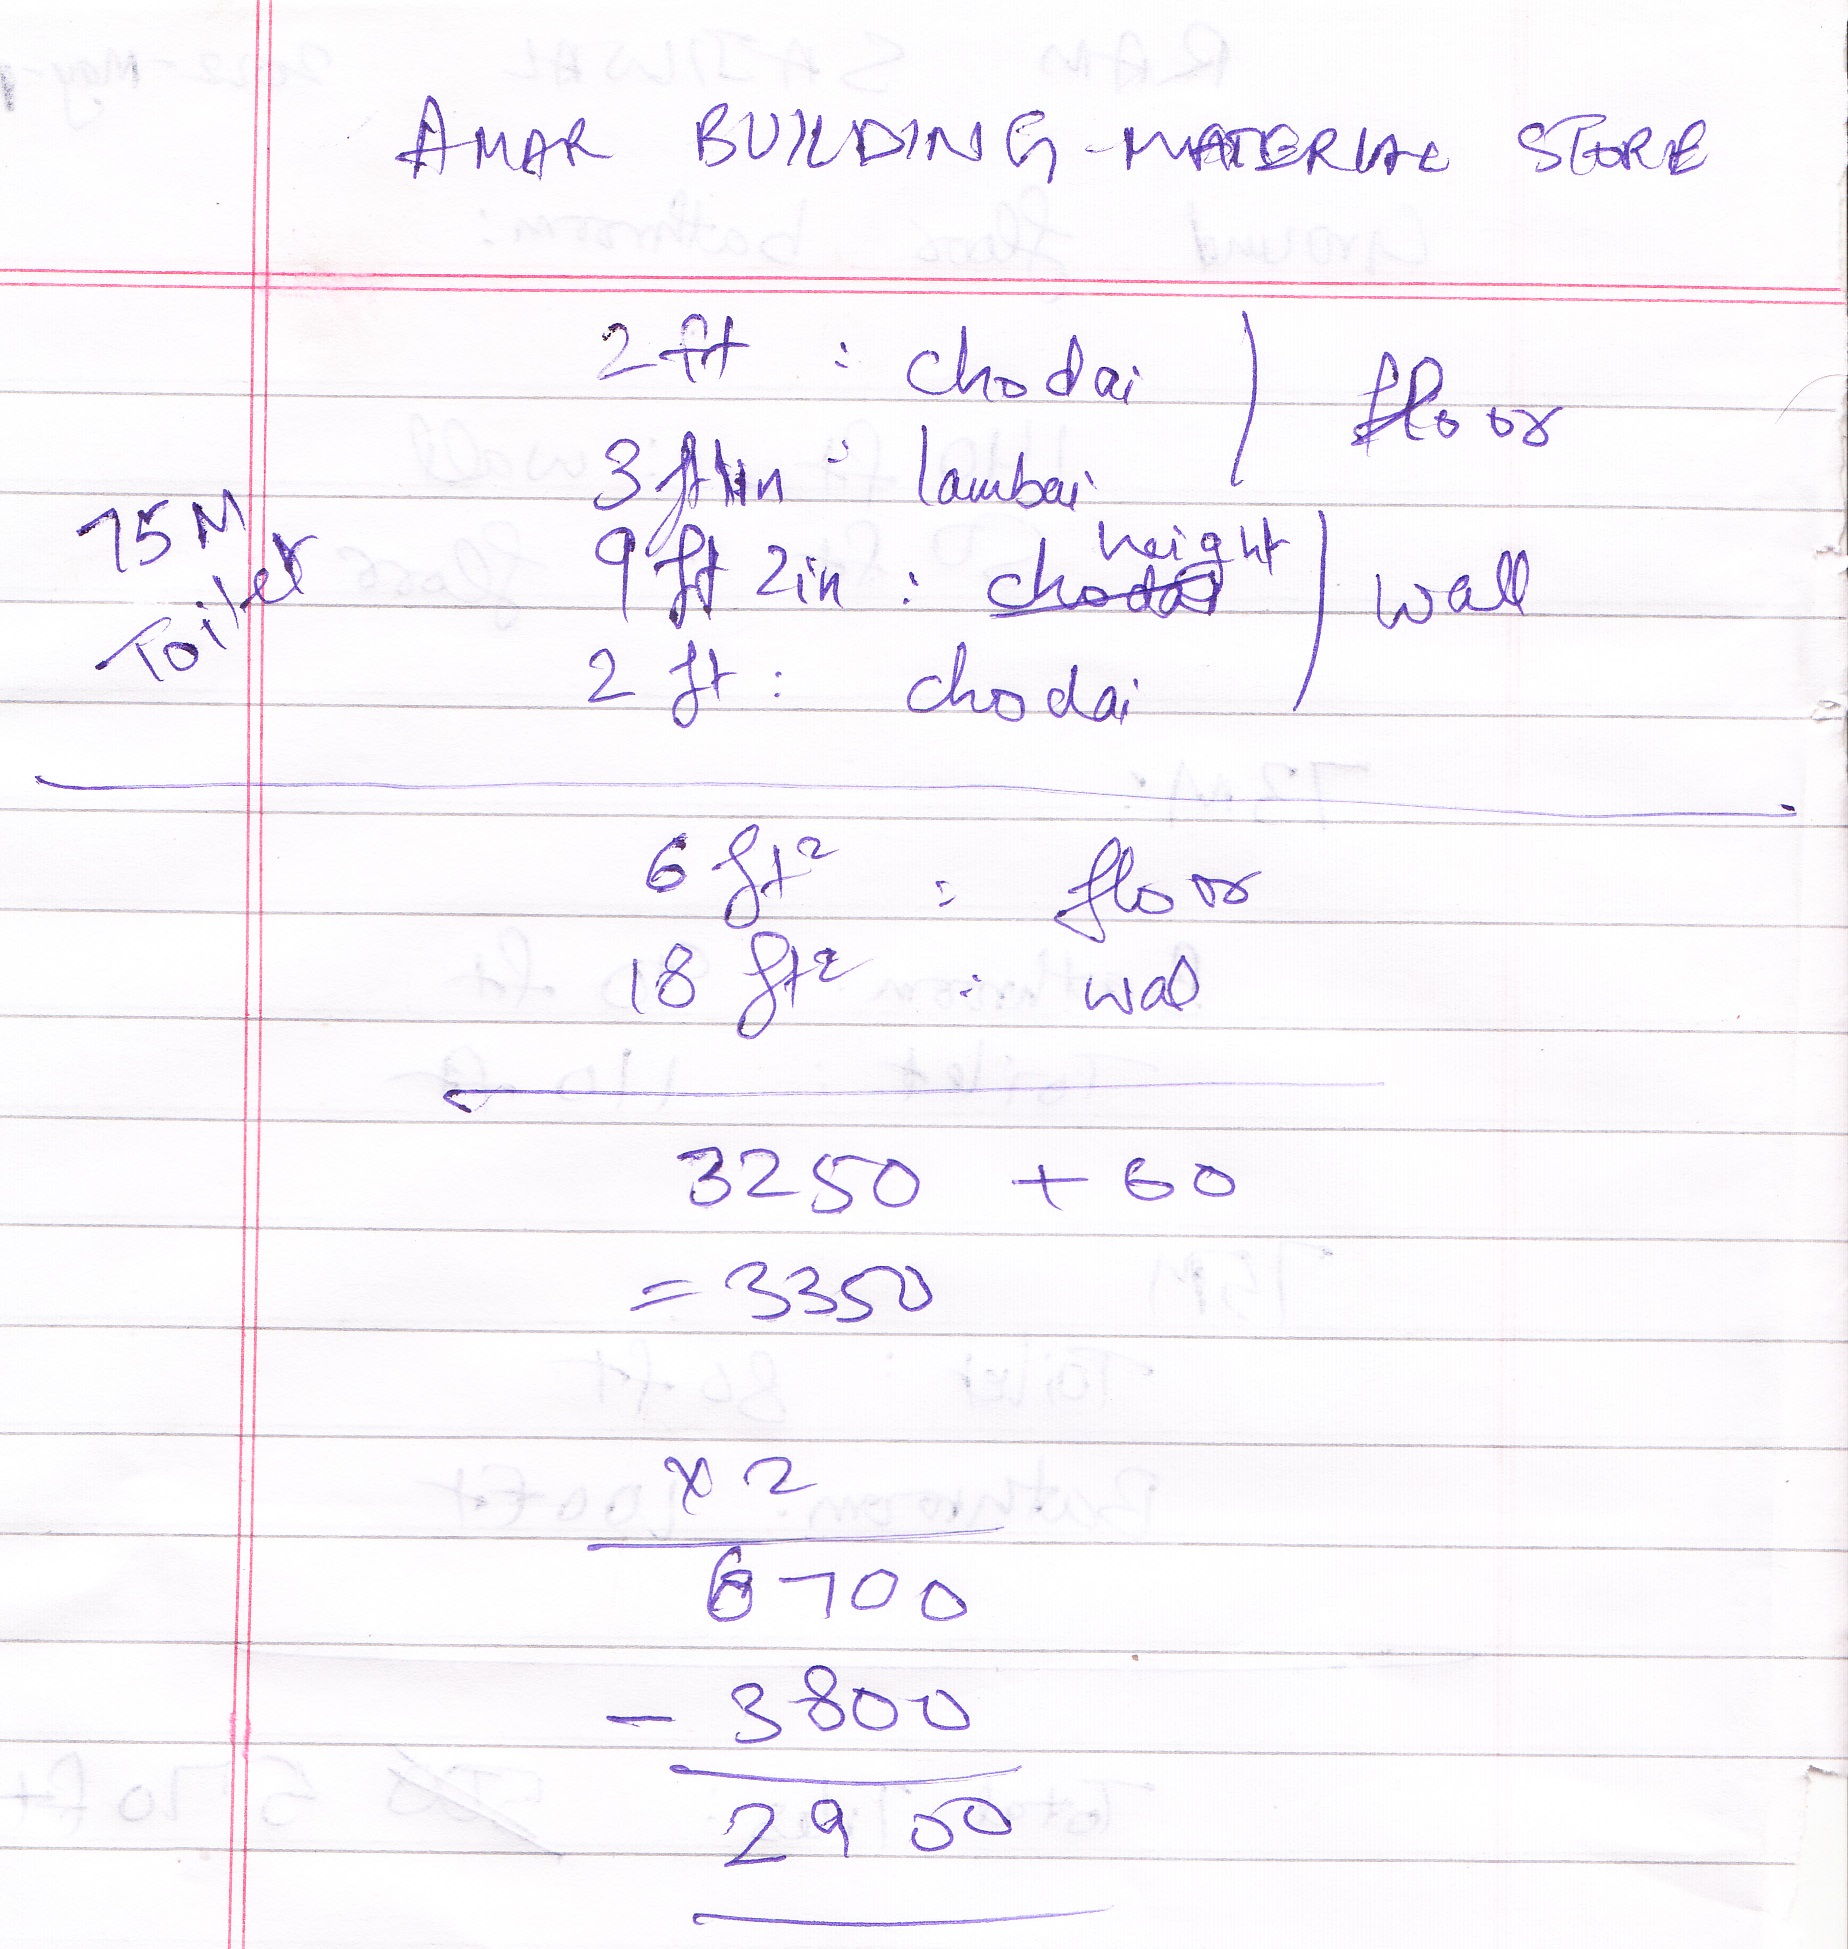 AMAR BUILDING MATERIAL STORE
2 ft : chodai
floor
3 ft 1in : lambai
75M Toilet
9 ft 2in : height
wall
2 ft : chodai
6 ft² : floor
18 ft² : wall
3250 + 60
= 3350
x 2
6700
- 3800
2900